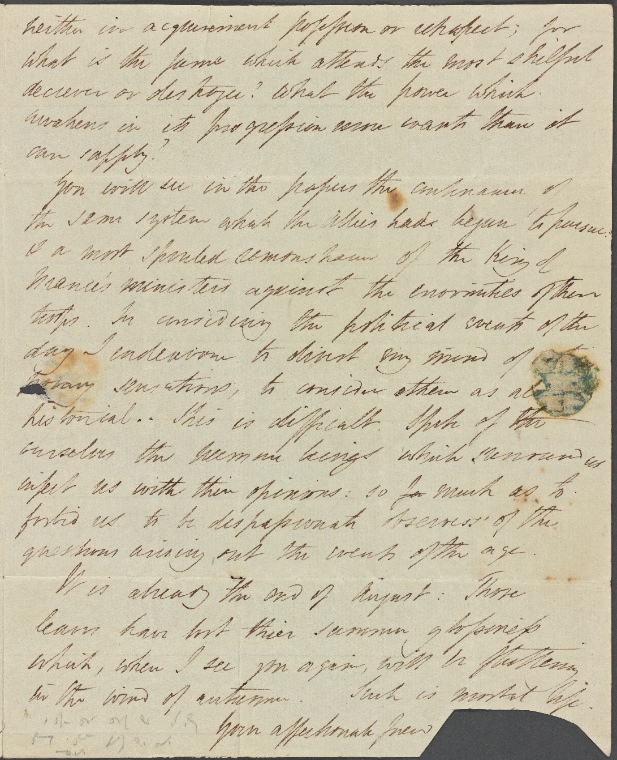 neither in acquirement possession or retrospect; for
what is the fame which attends the most skilful
deciever or destroyer? What the power which
awakens in its progression more wants than it
can supply?
You will see in the papers the continuance of
the same system which the Allies had begun to pursue:
& a most spirited remonstrance of the King of
France's ministers against the enormities of their
troops. In considering the political events of the
day I endeavour to divest my mind of
sensations, to consider them as al
historical.. This is difficult. Spite of
ourselves the human beings which surround us
infect us with their opinions: so much as to
forbid us to be dispassionate observers of the
questions arising out the events of the age.
It is already the end of August: Those
leaves have lost their summer glossiness
which, when I see you again, will be fluttering
in the wind of autumn. Such is mortal life.
Your affectionate friend